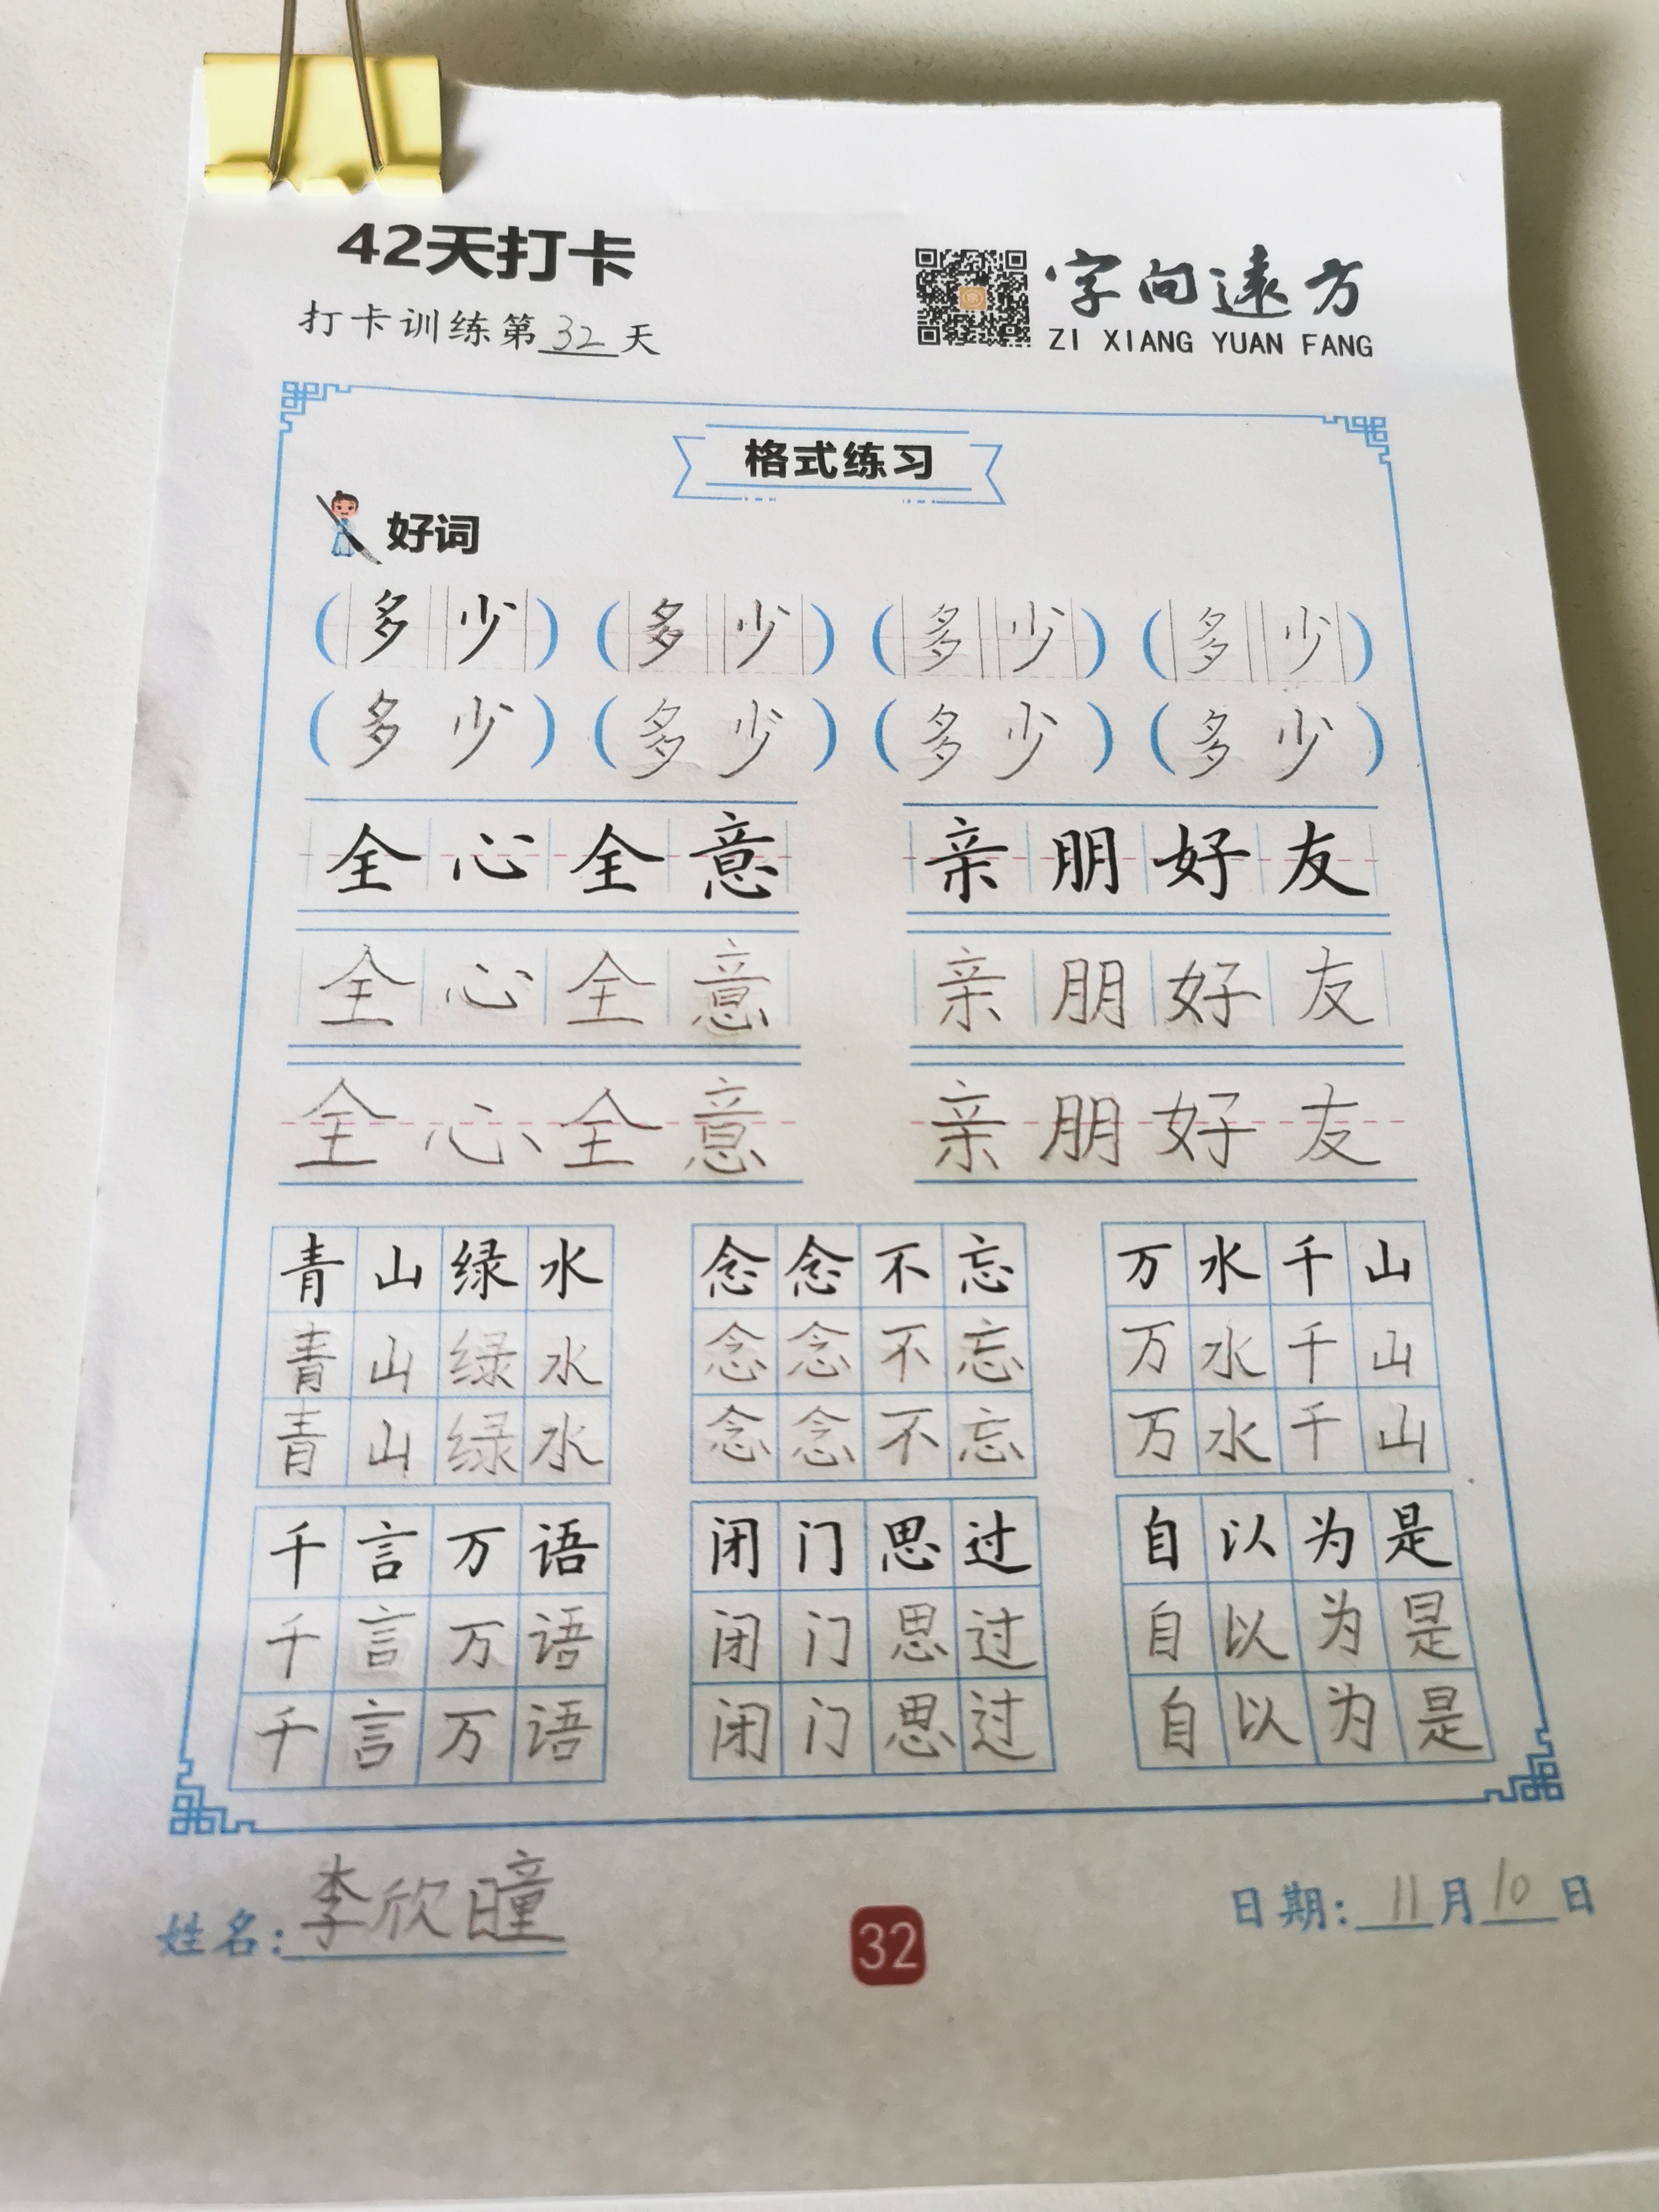 42天打卡
打卡训练第32天
字向遠方
ZI XIANG YUAN FANG
格式练习
好词
(多少) (多少) (多少) (多少)
(多少) (多少) (多少) (多少)
全心全意 亲朋好友
全心全意 亲朋好友
全心全意 亲朋好友
青山绿水 念念不忘 万水千山
青山绿水 念念不忘 万水千山
青山绿水 念念不忘 万水千山
千言万语 闭门思过 自以为是
千言万语 闭门思过 自以为是
千言万语 闭门思过 自以为是
姓名:李欣曈
32
日期:11月10日